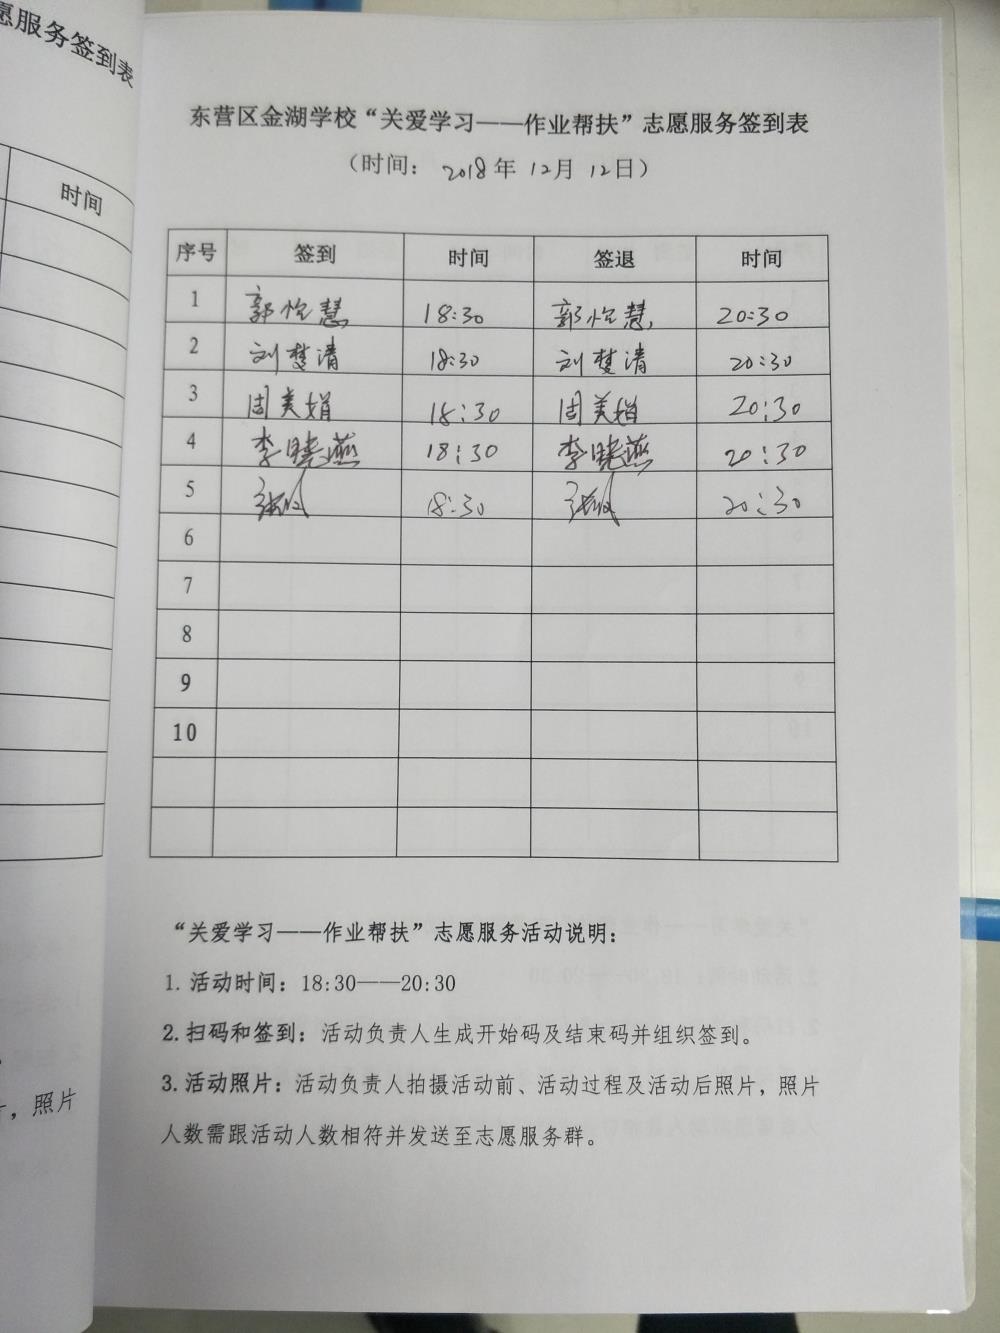 愿服务签到表
时间
，照片
东营区金湖学校“关爱学习——作业帮扶”志愿服务签到表
（时间： 2018年 12月 12日）
序号 签到 时间 签退 时间
1 郭怡慧 18:30 郭怡慧 20:30
2 刘梦清 18:30 刘梦清 20:30
3 周美娟 18:30 周美娟 20:30
4 李晓燕 18:30 李晓燕 20:30
5 18:30 20:30
6
7
8
9
10
“关爱学习——作业帮扶”志愿服务活动说明：
1. 活动时间：18:30——20:30
2. 扫码和签到：活动负责人生成开始码及结束码并组织签到。
3. 活动照片：活动负责人拍摄活动前、活动过程及活动后照片，照片
人数需跟活动人数相符并发送至志愿服务群。